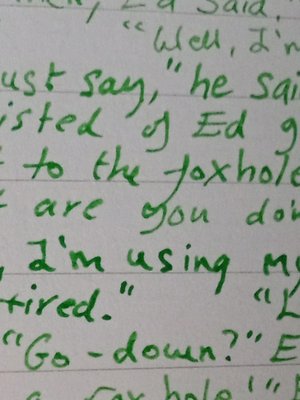 Ed said.
"Well, I'm
ust say," he sai
isted of Ed g
t to the foxhole
t are you do
, I'm using my
tired." "L
"Go-down?" E
a foxhole!"